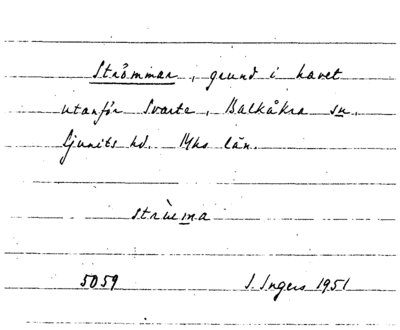 Strömmar, grund i havet
utanför Svarte, Balkåkra sn.
Ljunits hd. Mhs län.
strùmma
5059 I. Ingers 1951